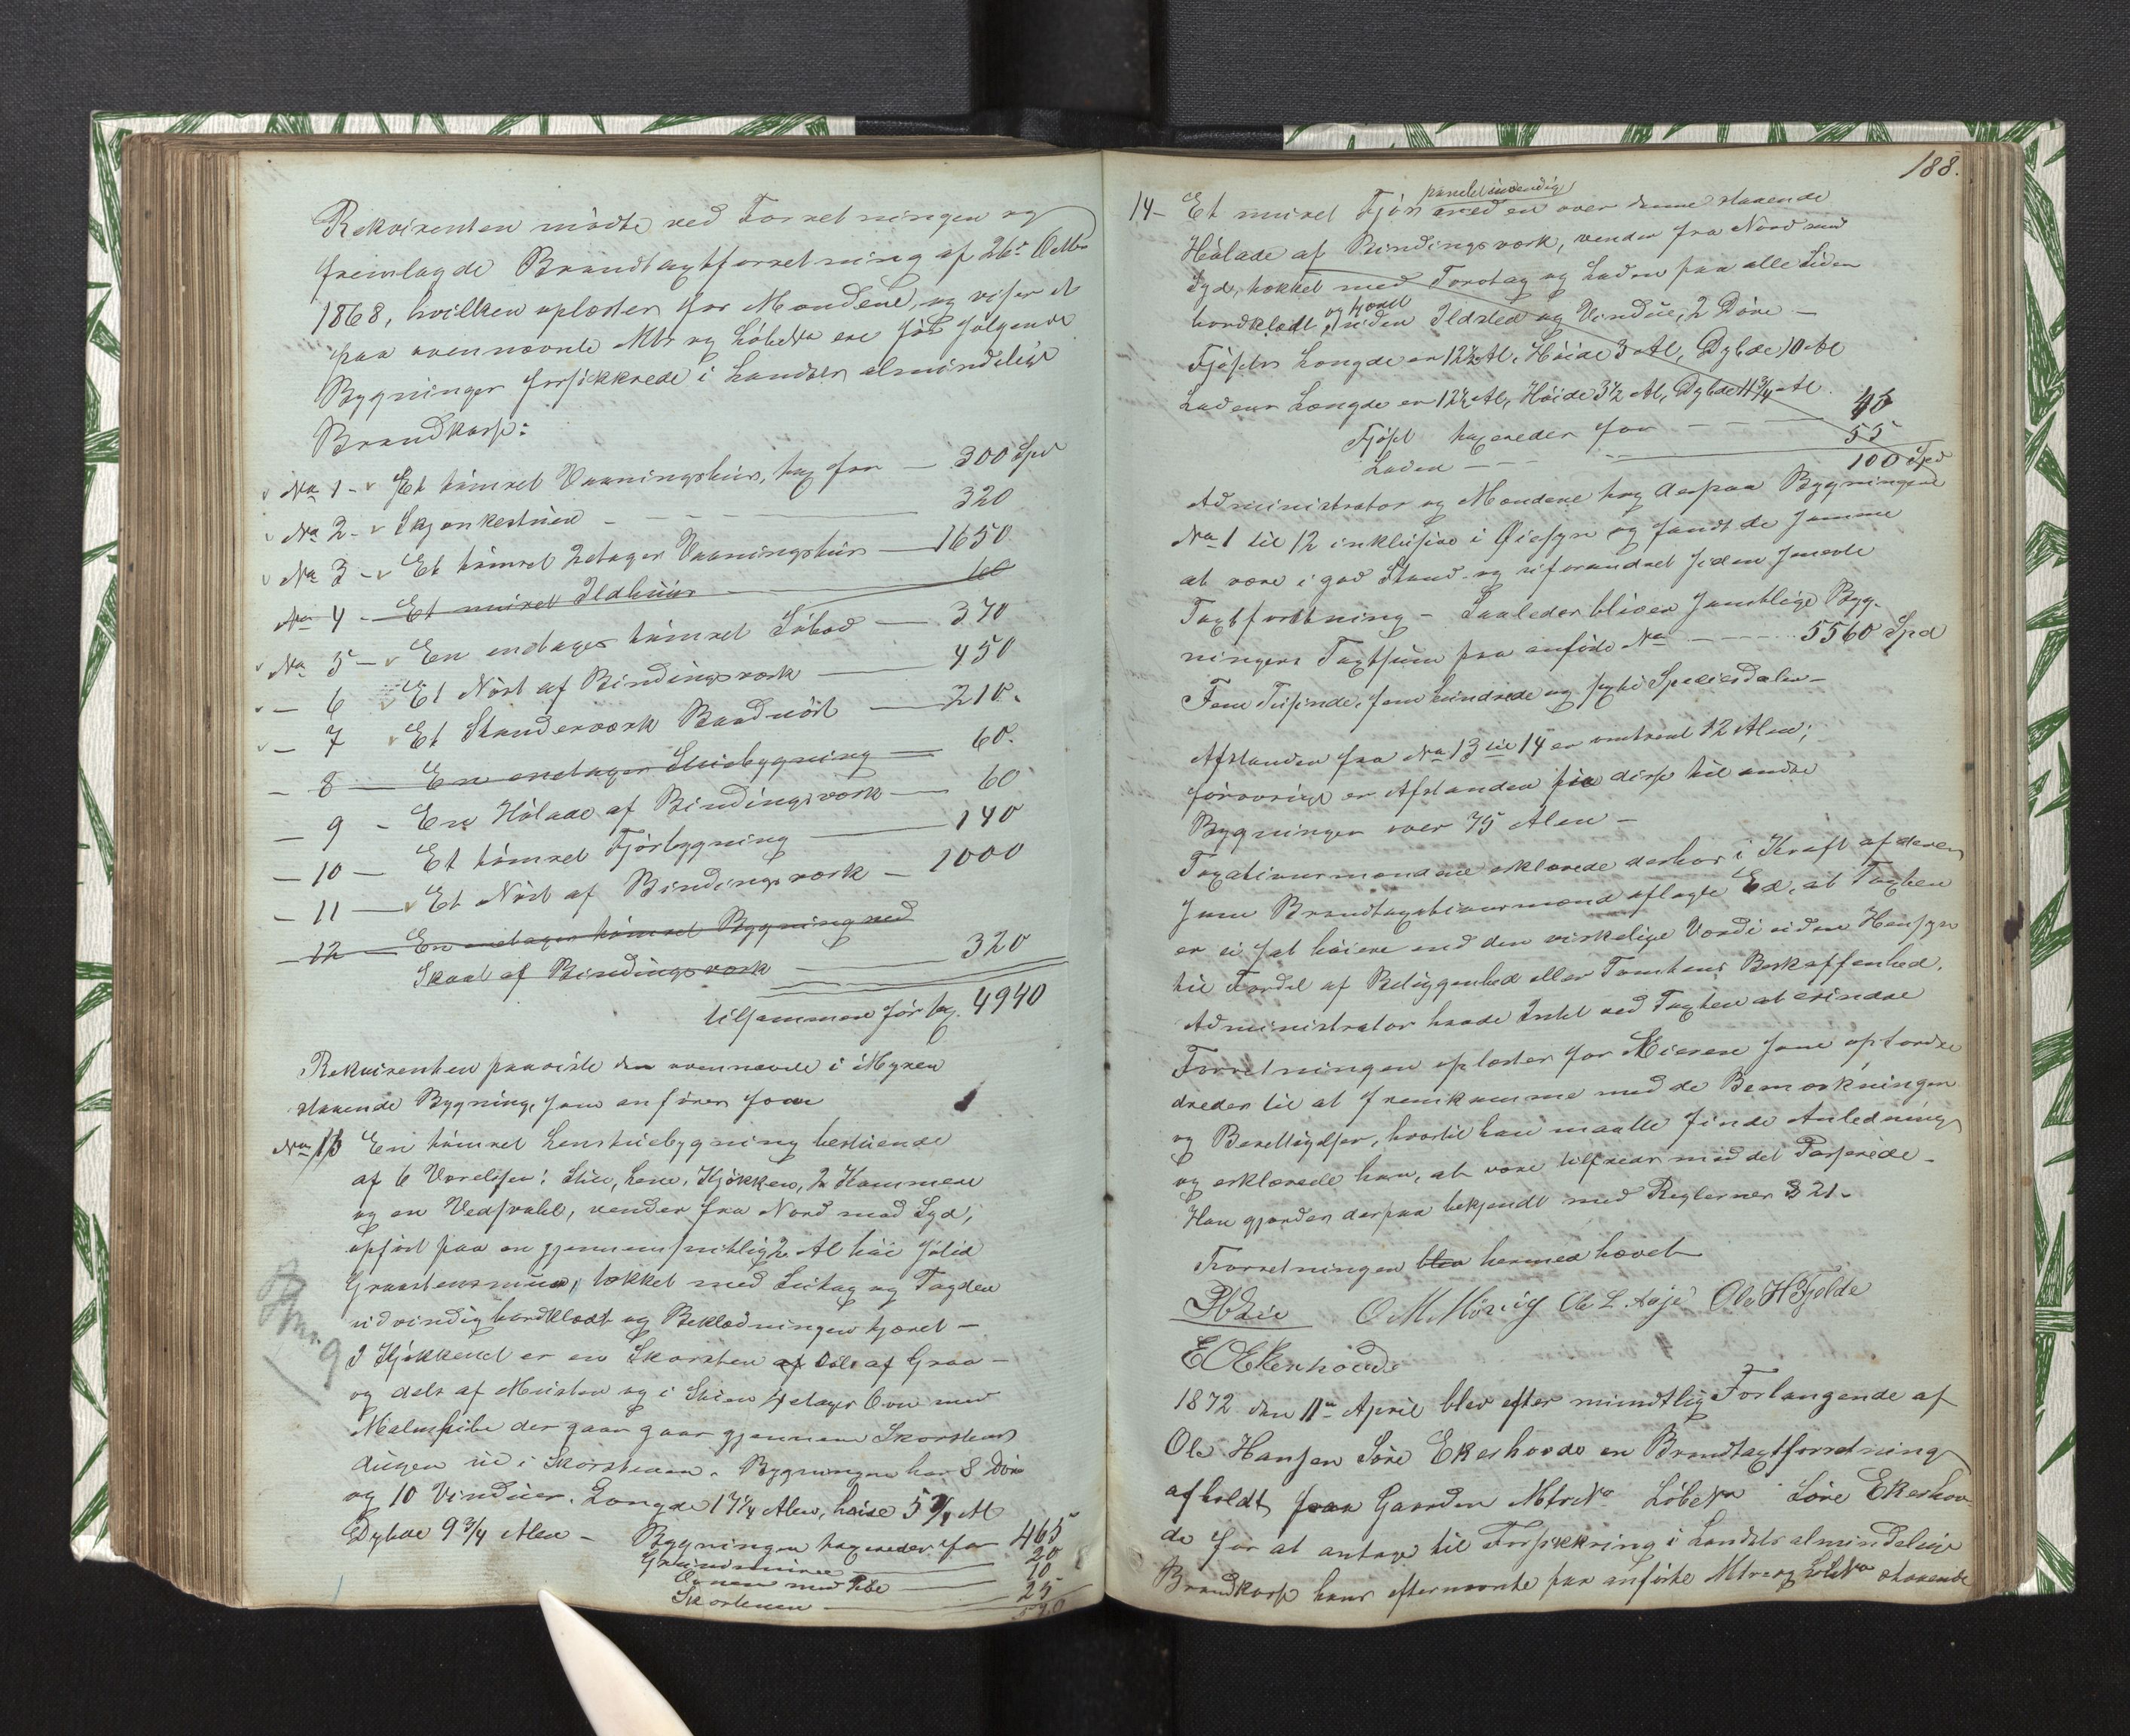 Rekvirenten mødte ved Forretningen og
fremlagde Brandtaxtforretning af 26de Octbr
1868, hvilken oplæstes for Mændene, og viser at
paa ovennævnte Mtr og LøbeNo ere før følgende
Bygninger forsikkrede i Landets almindelige
Brandkasse:
No 1 - Et tømret Vaaningshus, tax for — 300 Spd
No 2 - Skjænkestuen — 320
No 3 - Et tømret 2etages Vaaningshus — 1650
No 4 - Et muret Ildhuus — 60
No 5 - En enetages tømret Søbod — 370
— 6 Et Nøst af Bindingsværk — 450
— 7 Et Standerværk Baadnøst — 210.
— 8 — En enetages Stuebygning — 60.
— 9 - En Hølade af Bindingsværk — 60
— 10 — Et tømret Fjøsbygning — 140
— 11 — Et Nøst af Bindingsværk — 1000
— 12 — En enetages tømret Bygning med
Skaat af Bindingsværk — 320
tilsammen før tax. 4940
Rekvirenten paaviste den ovennævnte i Myren
staaende Bygning, som anføres som
No 13 En tømret Lenstuebygning bestaaende
af 6 Værelser: Stue, Lene, Kjøkken, 2 Kammere
og en Vedsvalel, vender fra Nord mod Syd,
opført paa en gjennemsnitlig 2 Al høi solid
Graastensmuur, tækket med Lutag og Tagsten
udvendig bordklædt og Beklædningen tjæret —
I Kjøkkenet er en Skorsten af dels af Graa-
og dels af Mursten og i Stuen 4 etages Ovn med
Malmpibe der gaar gaar gjennem Skorstens
ud i Skorstenen. Bygningen har 8 Døre
og 10 Vinduer. Længde 17¼ Alen, høide 5¾ Al
Dybde 9¾ Alen — Bygningen taxeredes for 465
Grundmuren — 20
Ovnen med Pibe — 10
Skorstenen — 25
520
188.
14 - Et muret Fjøs panelet indvendig med en over denne staaende
Hølade af Bindingsværk, vender fra Nord mod
Syd, tækket med Torvtag og Laden paa alle Sider
bordklædt og tjæret, uden Ildsted og Vindue, 2 Døre —
Fjøsets Længde er 12½ Al. Høide 3 Al, Dybde 10 Al
Ladens Længde er 12½ Al, Høide 3½ Al, Dybde 11¾ Al.
Fjøset taxeredes for — 45
Laden — 55
100 Spd
Administrator og Mændene tog derpaa Bygningerne
No 1 til 12 inklusive i Øiesyn og fandt de samme
at være i god Stand og uforandret siden seneste
Taxtforretning - Saaledes bliver samtlige Byg-
ningers Taxtsum paa anførte No — 5560 Spd
Fem Tusinde, fem hundrede og sexti Speciesdaler —
Afstanden fra No 13 til 14 er omtrent 12 Alen;
forøvrigt er Afstanden fra disse til andre
Bygninger over 75 Alen —
Taxationsmændene erklærede derhos i Kraft af deres
som Brandtaxationsmænd aflagte Ed, at Taxten
er ei sat høiere end den virkelige Værdi uden Hensyn
til Fordel af Beliggenhed eller Tomtens Beskaffenhed.
Administrator havde Intet ved Taxten at erindre
Forretningen oplæstes for Eieren som opfordre
dredes til at fremkomme med de Bemærkninger
og Berettigelser, hvortil han maatte finde Anledning
og erklærede han, at være tilfreds med det Passerede —
Han gjordes derpaa bekjendt med Reglernes § 21.
Forretningen blev hermed hævet
O M Mørvig Ole L. Aase Ole H Fjelde
E O Ekerhovd
1872 den 11te April blev efter mundtlig Forlangende af
Ole Hansen Søre Ekerhovde en Brandtaxtforretning
afholdt paa Gaarden MtreNo LøbeNo Søre Ekerhov
de for at antage til Forsikkring i Landets almindelige
Brandkasse hans efternævnte paa anførte Mtr og LøbeNo staaende